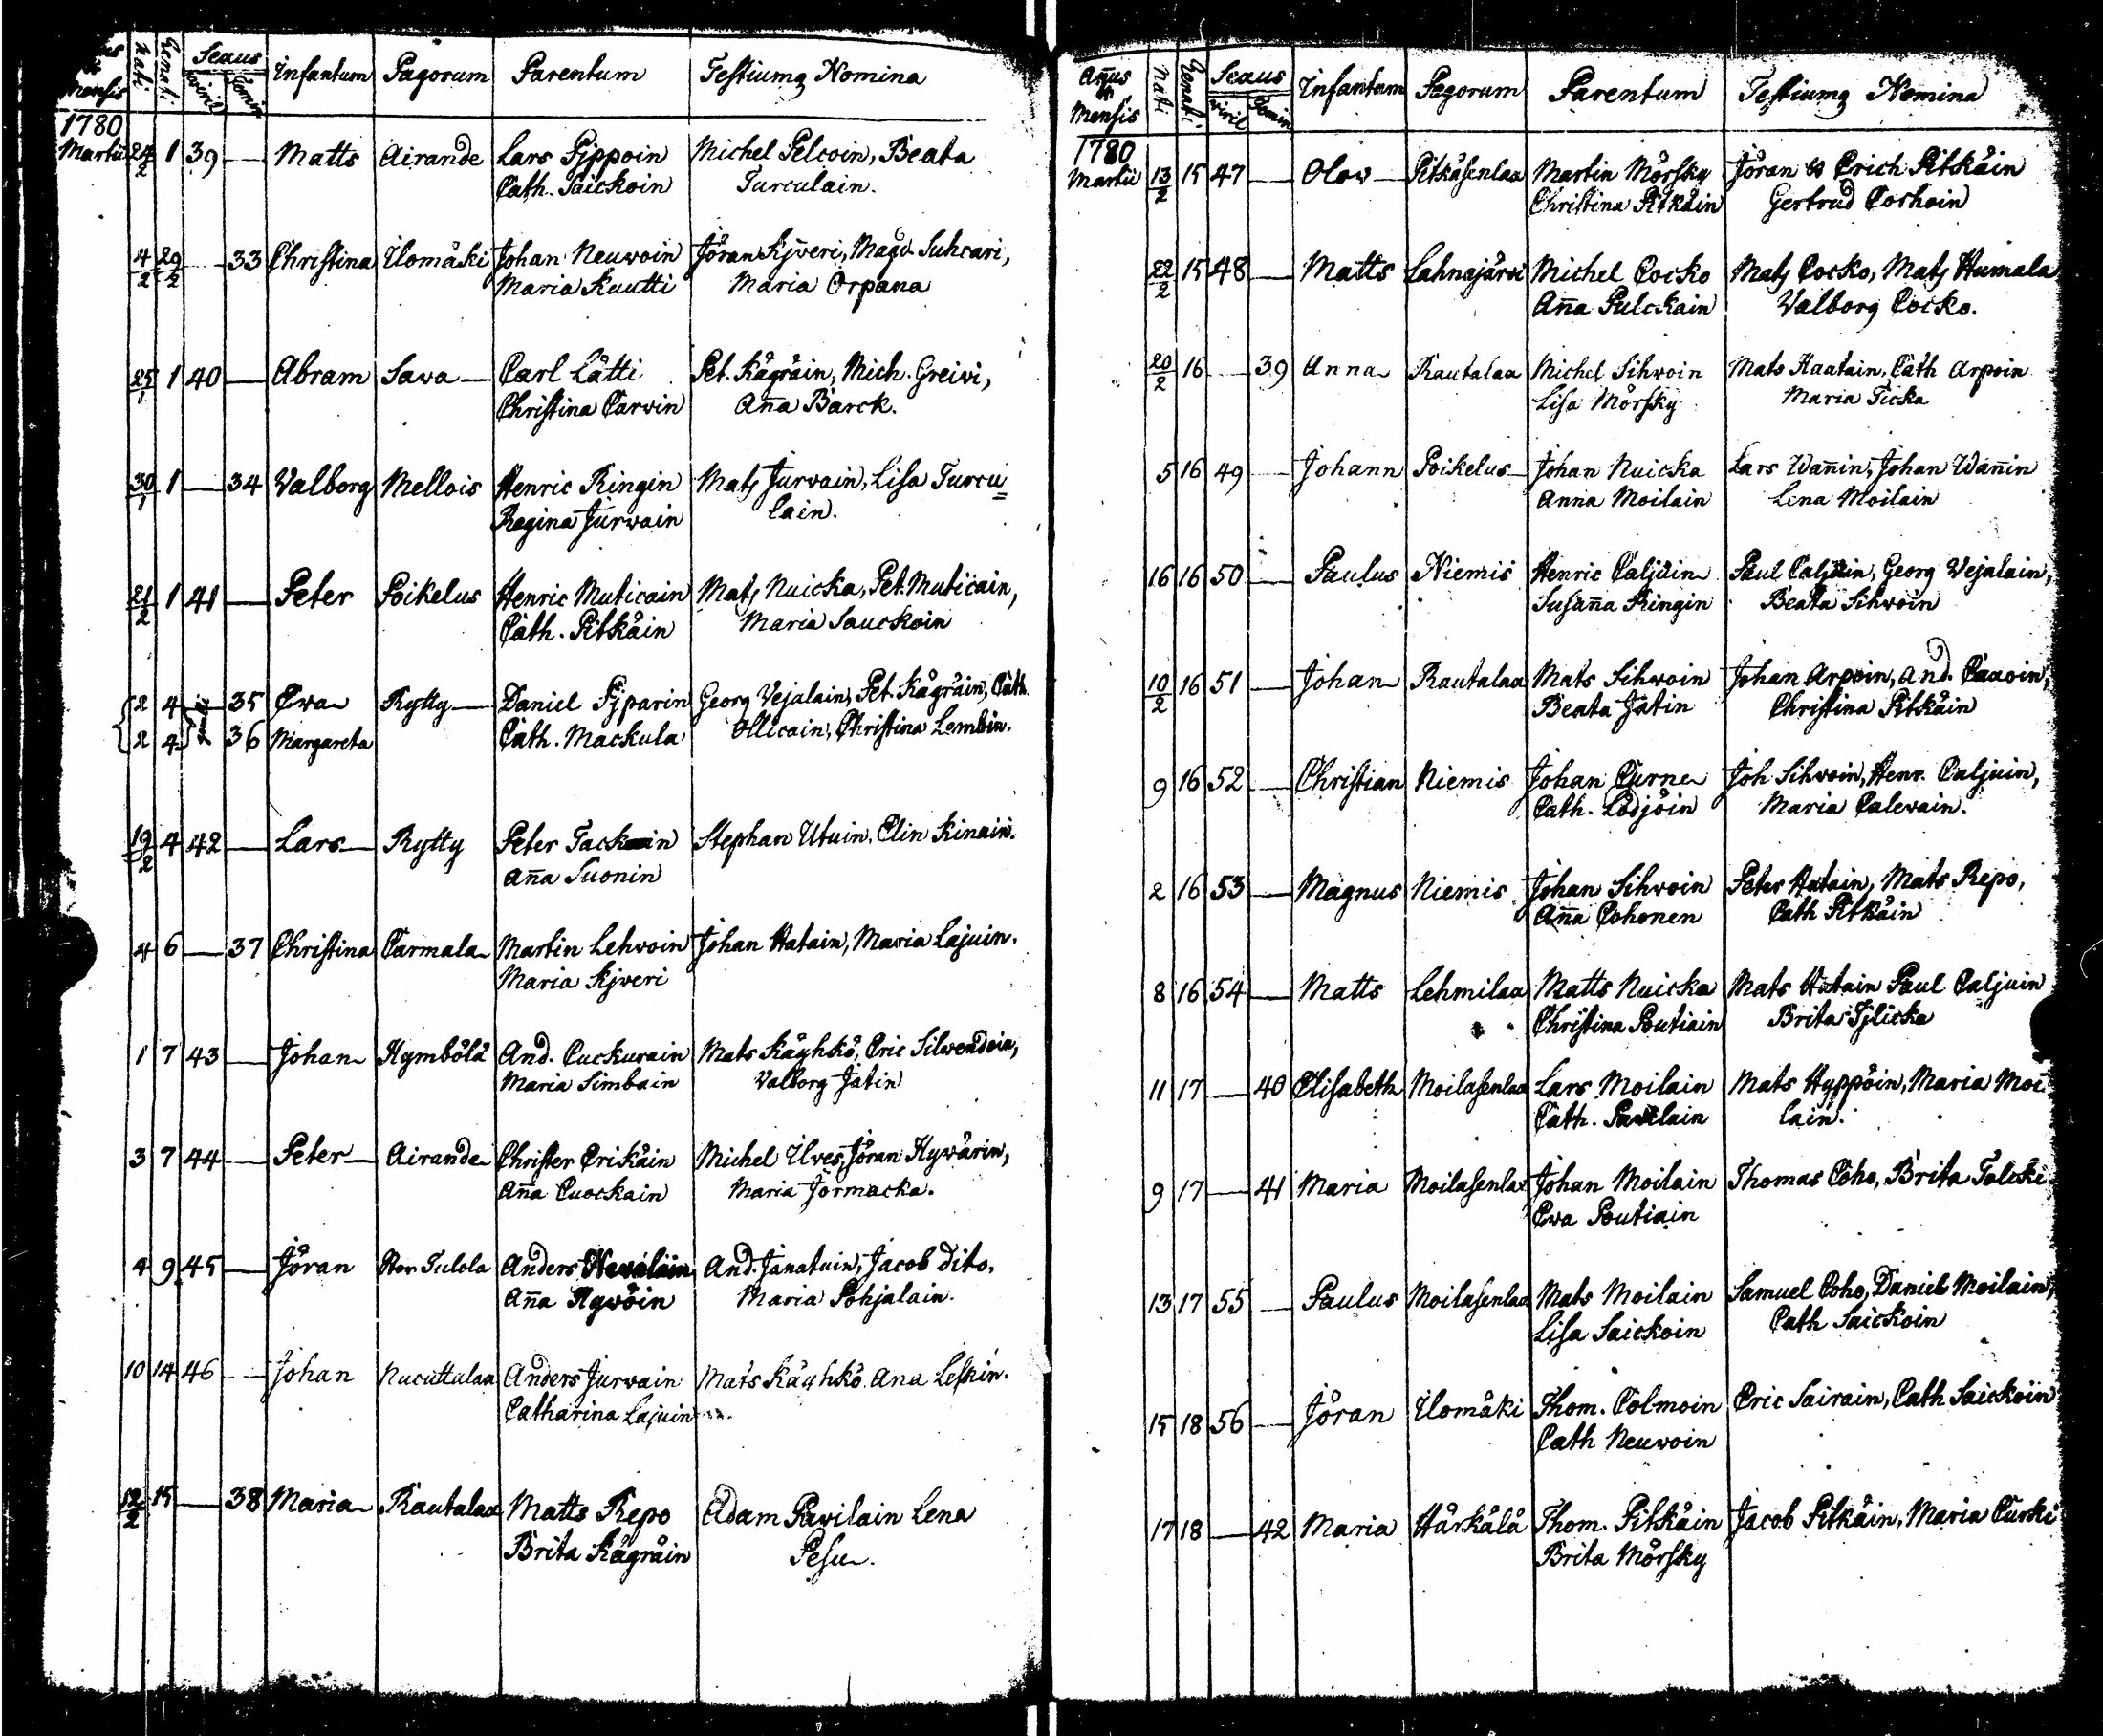 Mensis Nati Renati Sexus Infantum Pagorum Parentum Testiumq Nomina
Viril Femin
1780
Martii 24/2 1 39 — Matts Airande Lars Pijppoin Michel Pelcoin, Beata
Cath. Saickoin Turculain.
4/2 29/2 — 33 Christina Ilomäki Johan Neuwoin Jöran Kijveri, Magd. Suhcari,
Maria Kuutti Maria Orpana
25/1 1 40 — Abram Sawa Carl Lätti Pet. Kägräin, Mich. Greivi,
Christina Carvin Aña Barck.
30/1 1 — 34 Valborg Mellois Henric Ringin Mats Jurvain, Lisa Turcu=
Regina Jurvain lain.
21/2 1 41 — Peter Poikelus Henric Muticain Mats Nuicka, Pet. Muticain,
Cath. Pitkäin Maria Sauckoin
2 4 — 35 Ewa Rytty Daniel Pijparin Georg Vejalain, Pet. Kägräin, Cath.
2 4 36 Margareta Cath. Mackula Ollicain, Christina Lembin.
19/2 4 42 — Lars Rytty Peter Tackain Stephan Utuin, Elin Kinain.
Aña Suonin
4 6 — 37 Christina Carmala Martin Lehwoin Johan Hatain, Maria Lajuin.
Maria Kijveri
1 7 43 — Johan Hymbölä And. Cuckurain Mats Käyhkö, Eric Silwendoin,
Maria Simbain Valborg Jätin
3 7 44 — Peter Airande Christer Erikäin Michel Ilves, Jöran Hywärin,
Aña Cuockain Maria Jormacka.
4 9 45 — Jöran Stor Tulola Anders Hewäläin And. Janatuin, Jacob Dito,
Aña Hywöin Maria Pohjalain.
10 14 46 — Johan Nucuttalaa Anders Jurvain Mats Käyhkö Ana Leskin.
Catharina Lajuin
12/2 15 — 38 Maria Rautalaa Matts Repo Adam Pawilain Lena
Brita Kägräin Pesu.
Añus & Mensis Nati Renati Sexus Infantum Pagorum Parentum Testiumq Nomina
Viril Femin
1780
Martii 13/2 15 47 — Olov Pitkäsenlaa Martin Mörsky Jöran & Erich Pitkäin
Christina Pitkäin Gertrud Corhoin
22/2 15 48 — Matts Lahnajärvi Michel Cocko Mats Cocko, Mats Humala
Aña Pulckain Valborg Cocko.
20/2 16 — 39 Anna Rautalaa Michel Sihvoin Mats Haatain, Cath Arpoin
Lisa Mörsky Maria Ticka
5 16 49 — Johann Poikelus Johan Nuicka Lars Wañin, Johan Wañin
Anna Moilain Lena Moilain
16 16 50 — Paulus Niemis Henric Caljuin Paul Caljuin, Georg Vejalain,
Susaña Ringin Beata Sihvoin
10/2 16 51 — Johan Rautalaa Mats Sihvoin Johan Arpoin, And. Caxoin,
Beata Jätin Christina Pitkäin
9 16 52 — Christian Niemis Johan Curne Joh Sihvoin, Henr. Caljuin,
Cath. Lödjöin Maria Calevain.
2 16 53 — Magnus Niemis Johan Sihvoin Peter Hatain, Mats Repo,
Aña Cohonen Cath Pitkäin
8 16 54 — Matts Lehmilaa Matts Nuicka Mats Hatain Paul Caljuin
Christina Poutiain Brita Tijlicka
11 17 — 40 Elisabeth Moilasenlaa Lars Moilain Mats Hyppöin, Maria Moi=
Cath. Pawilain lain.
9 17 — 41 Maria Moilasenlaa Johan Moilain Thomas Coho, Brita Tolcki
Ewa Poutiain
13 17 55 — Paulus Moilasenlaa Mats Moilain Samuel Coho, Daniel Moilain,
Lisa Saickoin Cath Saickoin
15 18 56 — Jöran Ilomäki Thom. Colmoin Eric Sairain, Cath Saickoin
Cath Neuwoin
17 18 — 42 Maria Härkälä Thom. Pitkäin Jacob Pitkäin, Maria Curki
Brita Mörsky